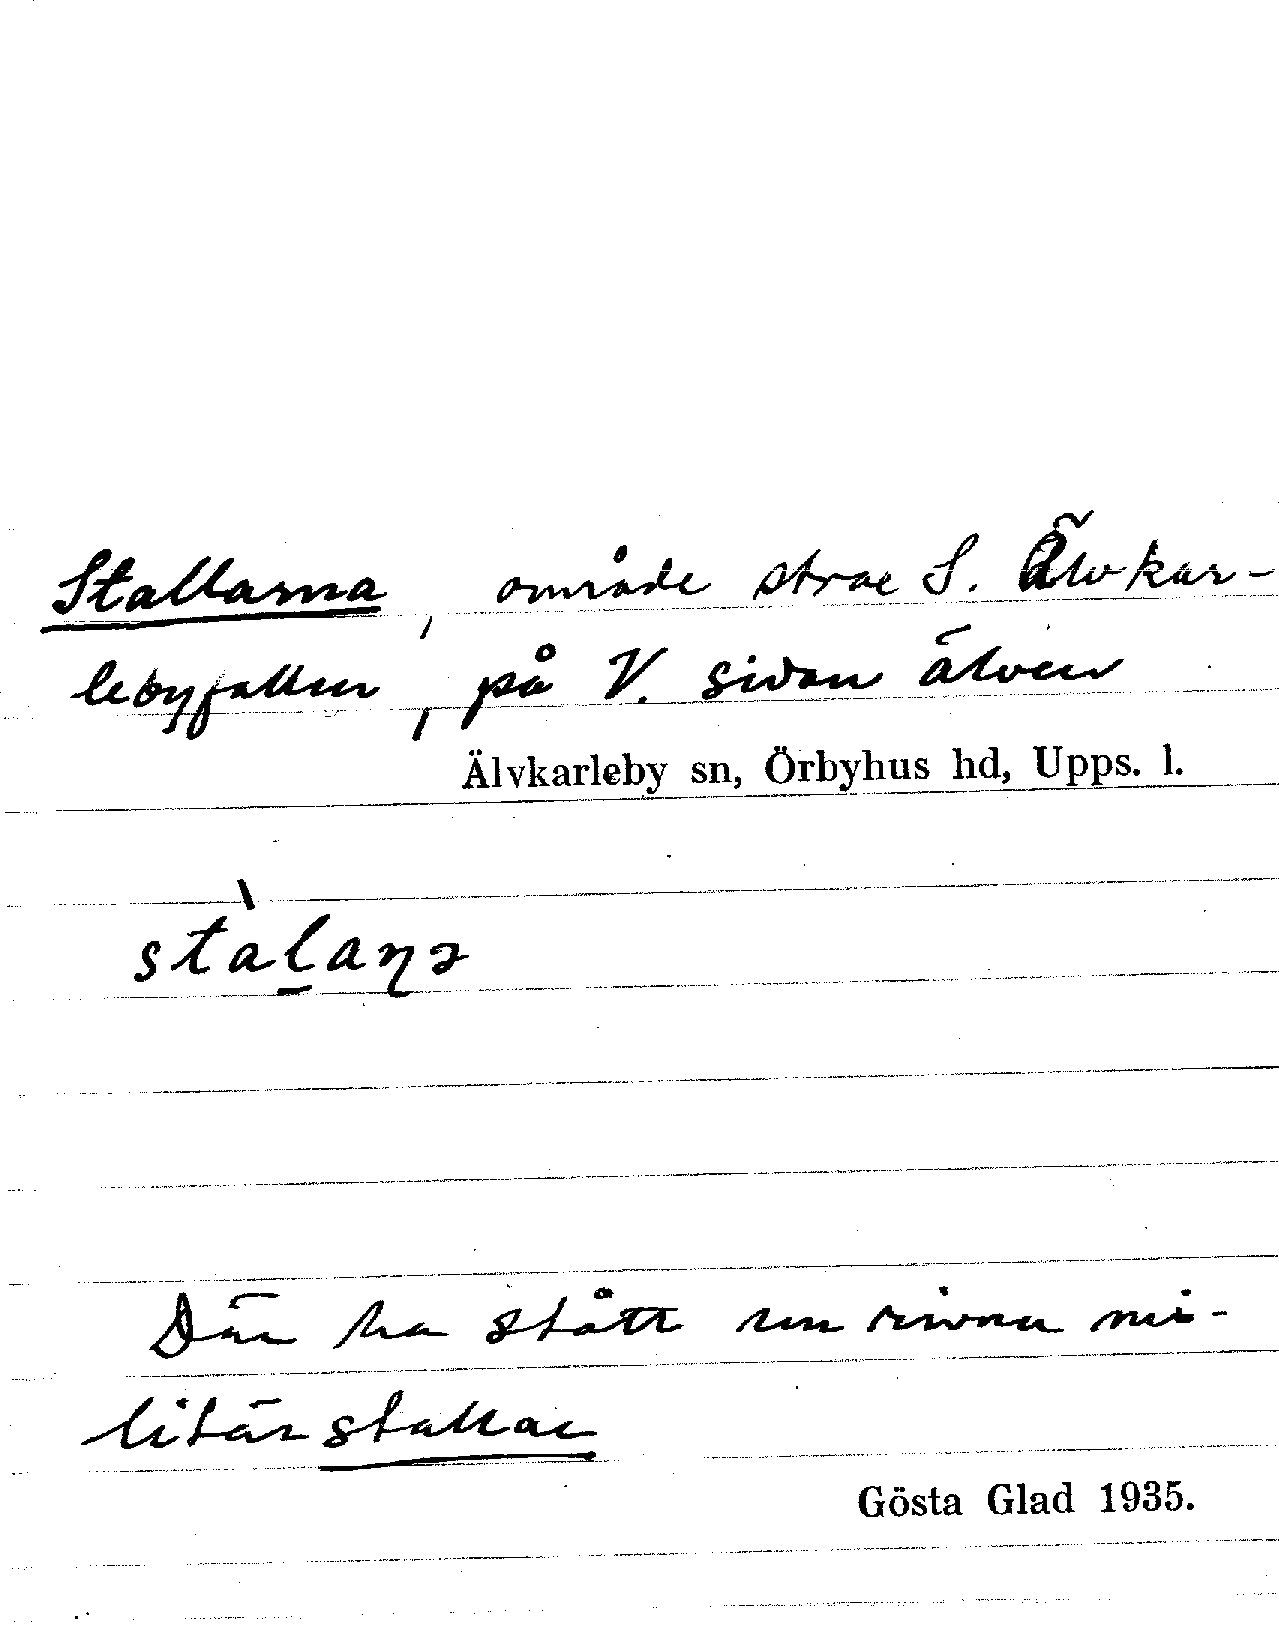 Stallarna, område strax S. Älvkar-
lebyfallen, på V. sidan älven
Älvkarleby sn, Örbyhus hd, Upps. l.
stàlaṇə
Där ha stått nu rivna mi-
litärstallar
Gösta Glad 1935.